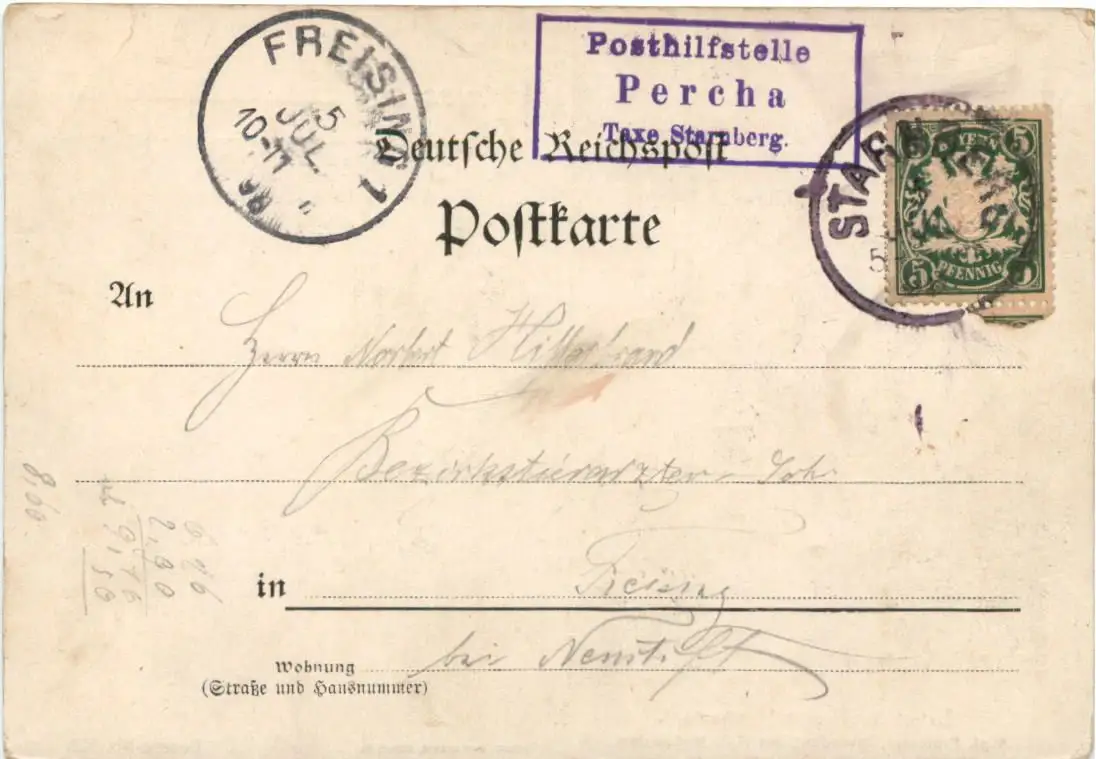 FREISING 1
5
JUL
10-11
Posthilfstelle
Percha
Taxe Starnberg.
Deutsche Reichspost
Postkarte
STARNBERG
BAYERN
5
5 PFENNIG 5
An
Herrn Norbert Hillerbrand
Bezirkstierarzt
in Freising
bei Neustift
Wohnung
(Straße und Hausnummer)
8,60
2,80